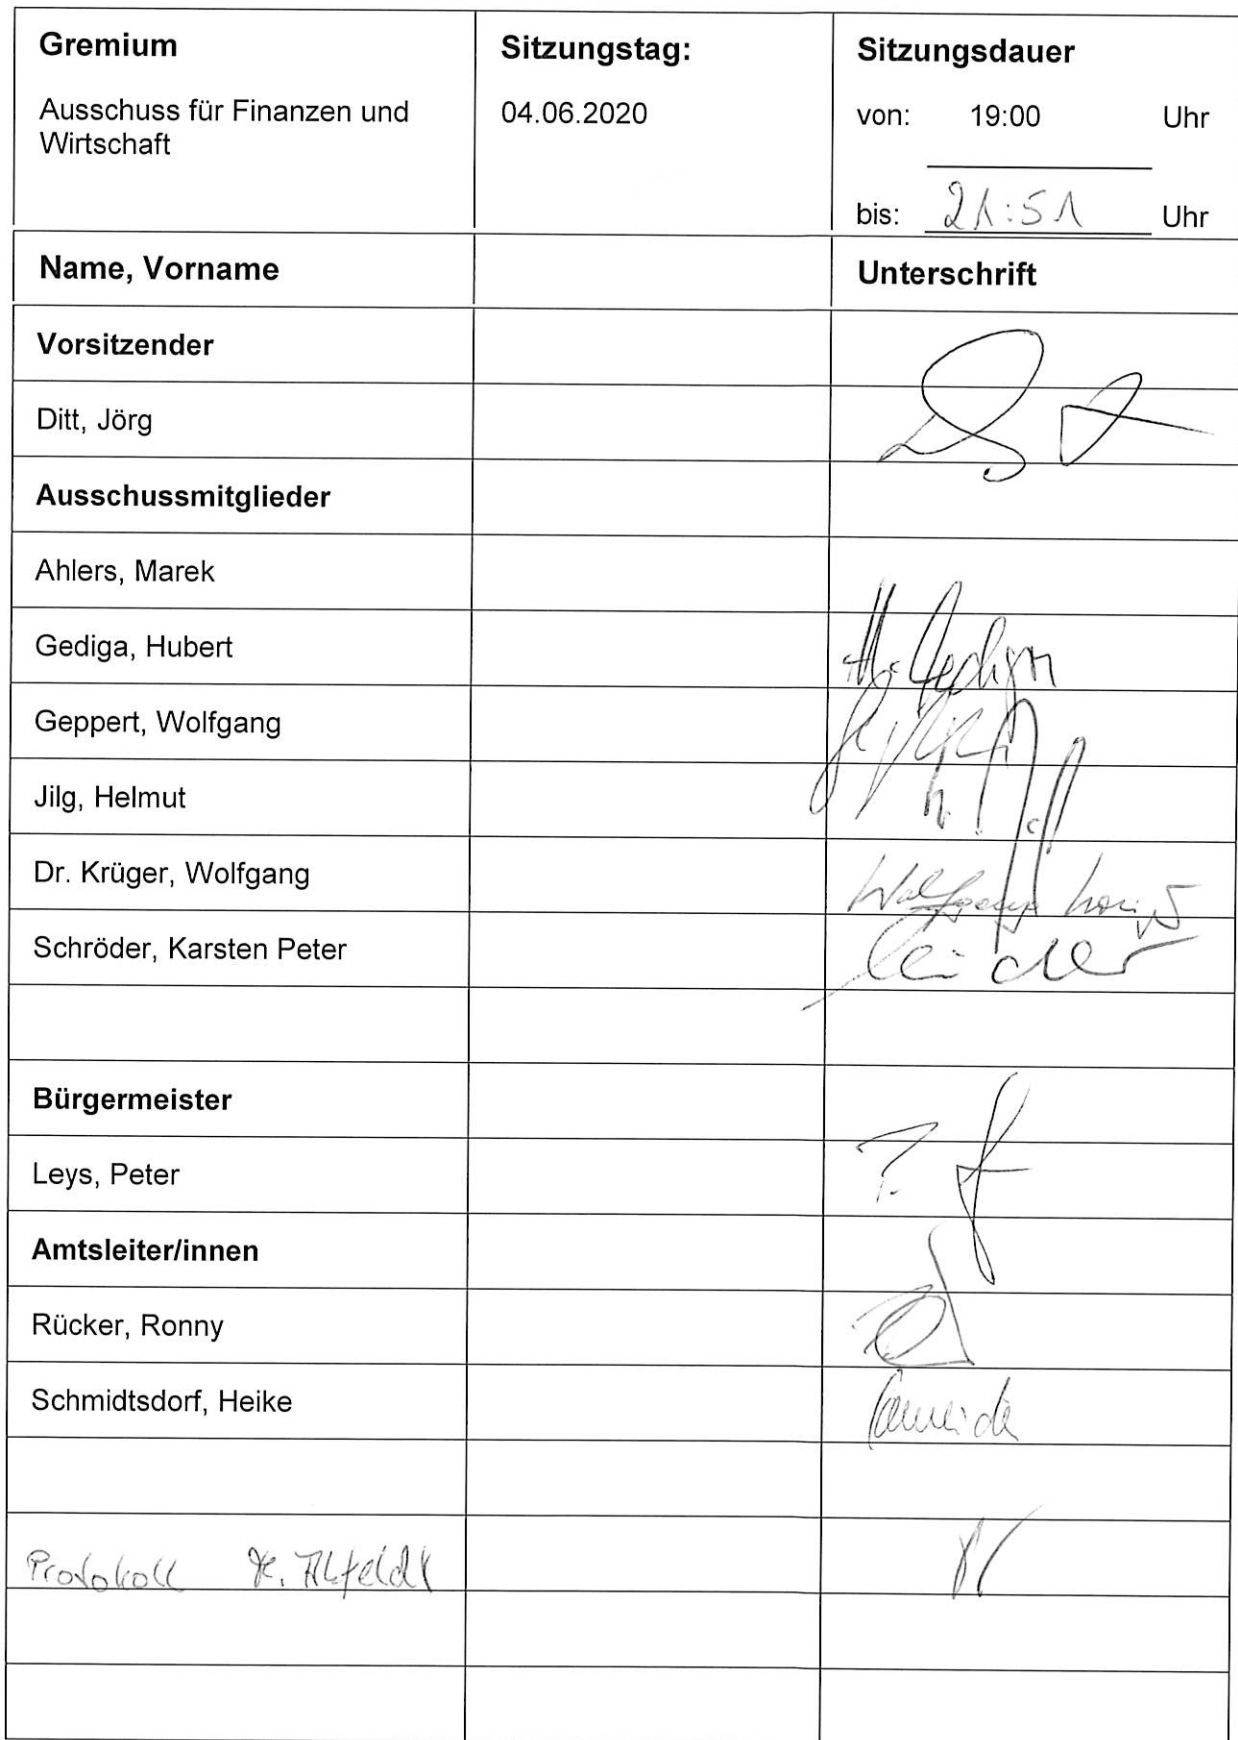 Gremium
Sitzungstag:
Sitzungsdauer
Ausschuss für Finanzen und
Wirtschaft
04.06.2020
von: 19:00 Uhr
bis: 21:51 Uhr
Name, Vorname
Unterschrift
Vorsitzender
Ditt, Jörg
Ausschussmitglieder
Ahlers, Marek
Gediga, Hubert
H. Gediga
Geppert, Wolfgang
Jilg, Helmut
Dr. Krüger, Wolfgang
Wolfgang
Schröder, Karsten Peter
Bürgermeister
Leys, Peter
Amtsleiter/innen
Rücker, Ronny
Schmidtsdorf, Heike
Protokoll